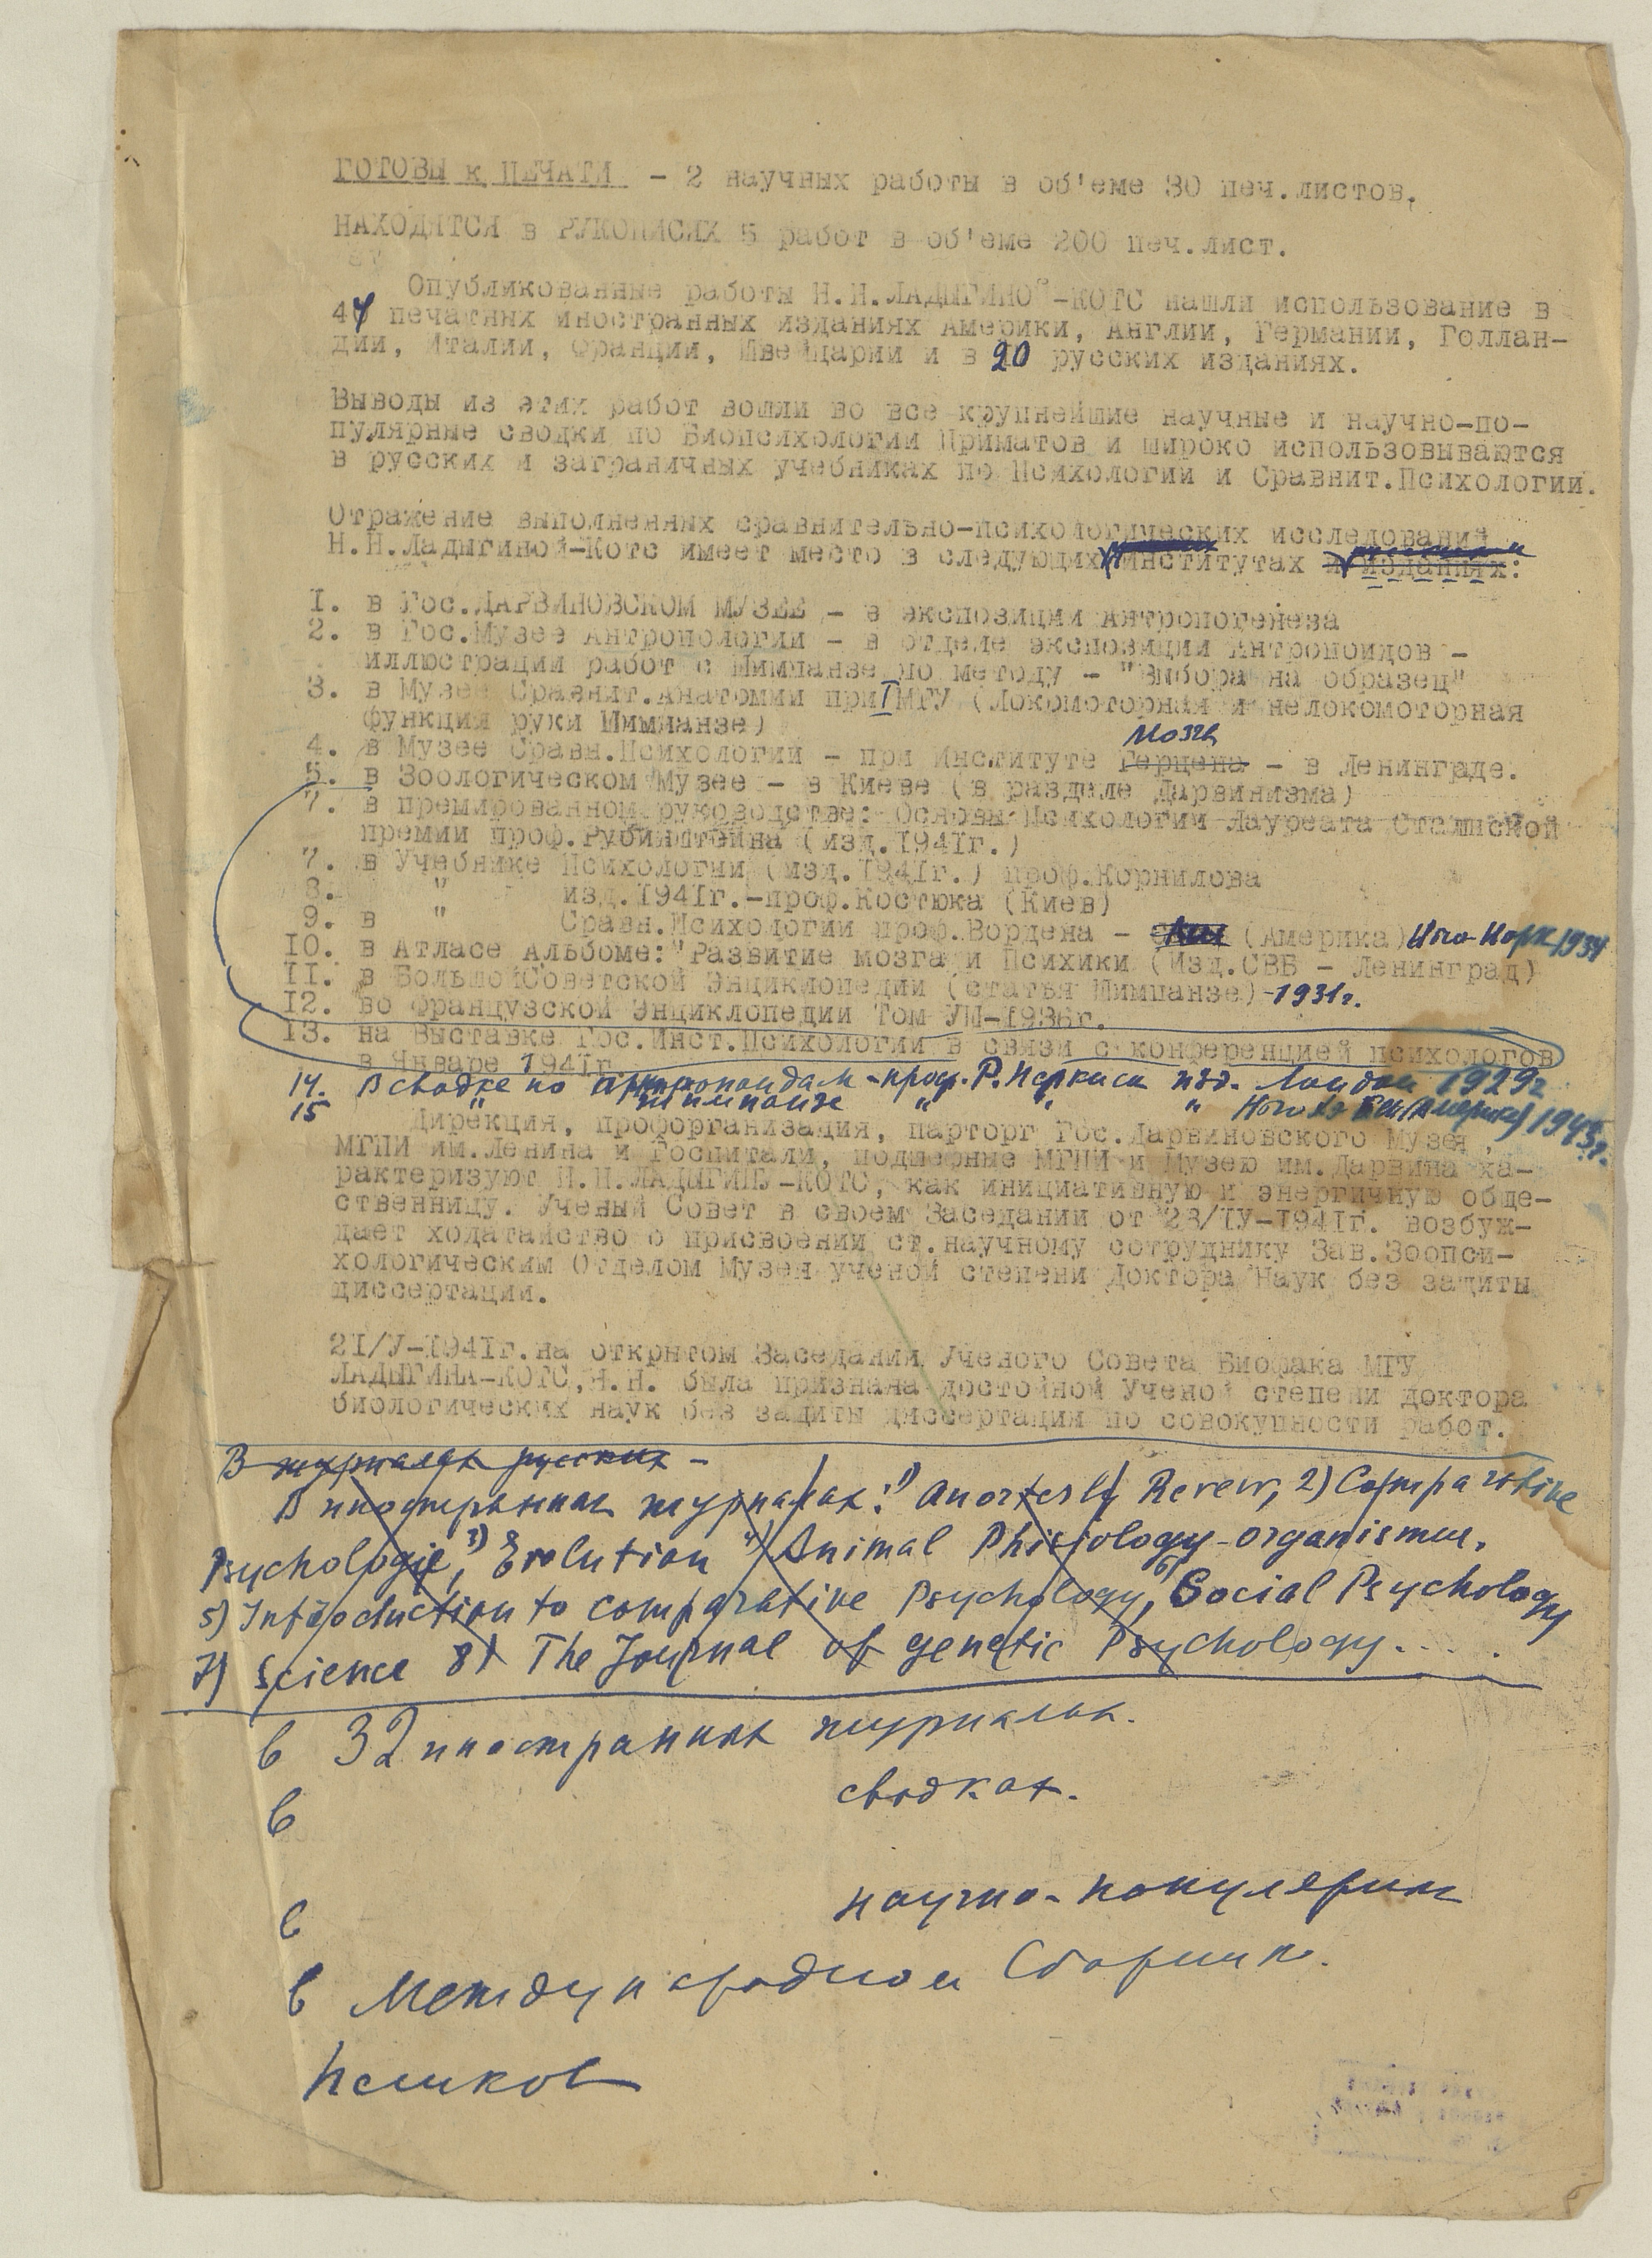 ГОТОВЫ к ПЕЧАТИ - 2 научных работы в об'еме 30 печ.листов.
НАХОДЯТСЯ в РУКОПИСЯХ 5 работ в об'еме 200 печ.лист.
Опубликованные работы Н.Н.ЛАДЫГИНОЙ-КОТС нашли использование в
44 печатных иностранных изданиях Америки, Англии, Германии, Голлан-
дии, Италии, Франции, Швейцарии и в 20 русских изданиях.
Выводы из этих работ вошли во все крупнейшие научные и научно-по-
пулярные сводки по Биопсихологии Приматов и широко использовываются
в русских и заграничных учебниках по Психологии и Сравнит.Психологии.
Отражение выполненных сравнительно-психологических исследований
Н.Н.Ладыгиной-Котс имеет место в следующих институтах и изданиях:
1. в Гос.ДАРВИНОВСКОМ МУЗЕЕ - в экспозиции Антропогенеза
2. в Гос.Музее Антропологии - в отделе экспозиции Антропоидов -
иллюстрации работ с Шимпанзе по методу - "Выбора на образец"
3. в Музее Сравнит.Анатомии при I МГУ (Локомоторная и нелокомоторная
функция руки Шимпанзе)
Мозга
4. в Музее Сравн.Психологии - при Институте Герцена - в Ленинграде.
5. в Зоологическом Музее - в Киеве (в разделе Дарвинизма)
7. в премированном руководстве: Основы Психологии Лауреата Сталинской
премии проф.Рубинштейна (изд.1941г.)
7. в Учебнике Психологии (изд.1941г.) проф.Корнилова
8. " изд.1941г.-проф.Костюка (Киев)
9. в " Сравн.Психологии проф.Вордена - (Америка) Нью-Йорк 1934
10. в Атласе Альбоме: "Развитие мозга и Психики (Изд.СВБ - Ленинград)
11. в Большой Советской Энциклопедии (статья Шимпанзе) -1931г.
12. во Французской Энциклопедии Том УШ-1936г.
13. на Выставке Гос.Инст.Психологии в связи с конференцией психологов
в Январе 1941г.
14. В сводке по антропоидам - проф. Р. Иеркиса изд. Лондон 1929г
15 " шимпанзе " " " Нью (Америка) 1943г.
Дирекция, профорганизация, парторг Гос.Дарвиновского Музея,
МГПИ им.Ленина и Госпитали, подшефные МГПИ и Музею им.Дарвина ха-
рактеризуют Н.Н.ЛАДЫГИНУ-КОТС, как инициативную и энергичную обще-
ственницу. Ученый Совет в своем Заседании от 23/IУ-1941г. возбуж-
дает ходатайство о присвоении ст.научному сотруднику Зав.Зоопси-
хологическим Отделом Музея ученой степени Доктора Наук без защиты
диссертации.
21/У-1941г.на открытом Заседании Ученого Совета Биофака МГУ
ЛАДЫГИНА-КОТС,Н.Н. была признана достойной Ученой степени доктора
биологических наук без защиты диссертации по совокупности работ.
В журналах русских -
В иностранных журналах: 1) Quorterly Revew, 2) Comparative
Psychologie, 3) Evolution 4) Animal Phisiology-organismus.
5) Introduction to comparative Psychology, 6) Social Psychology
7) Science 8) The Journal of genetic Psychology....
в 32 иностранных журналах.
в сводках.
в научно-популярных
в Международном Сборник.